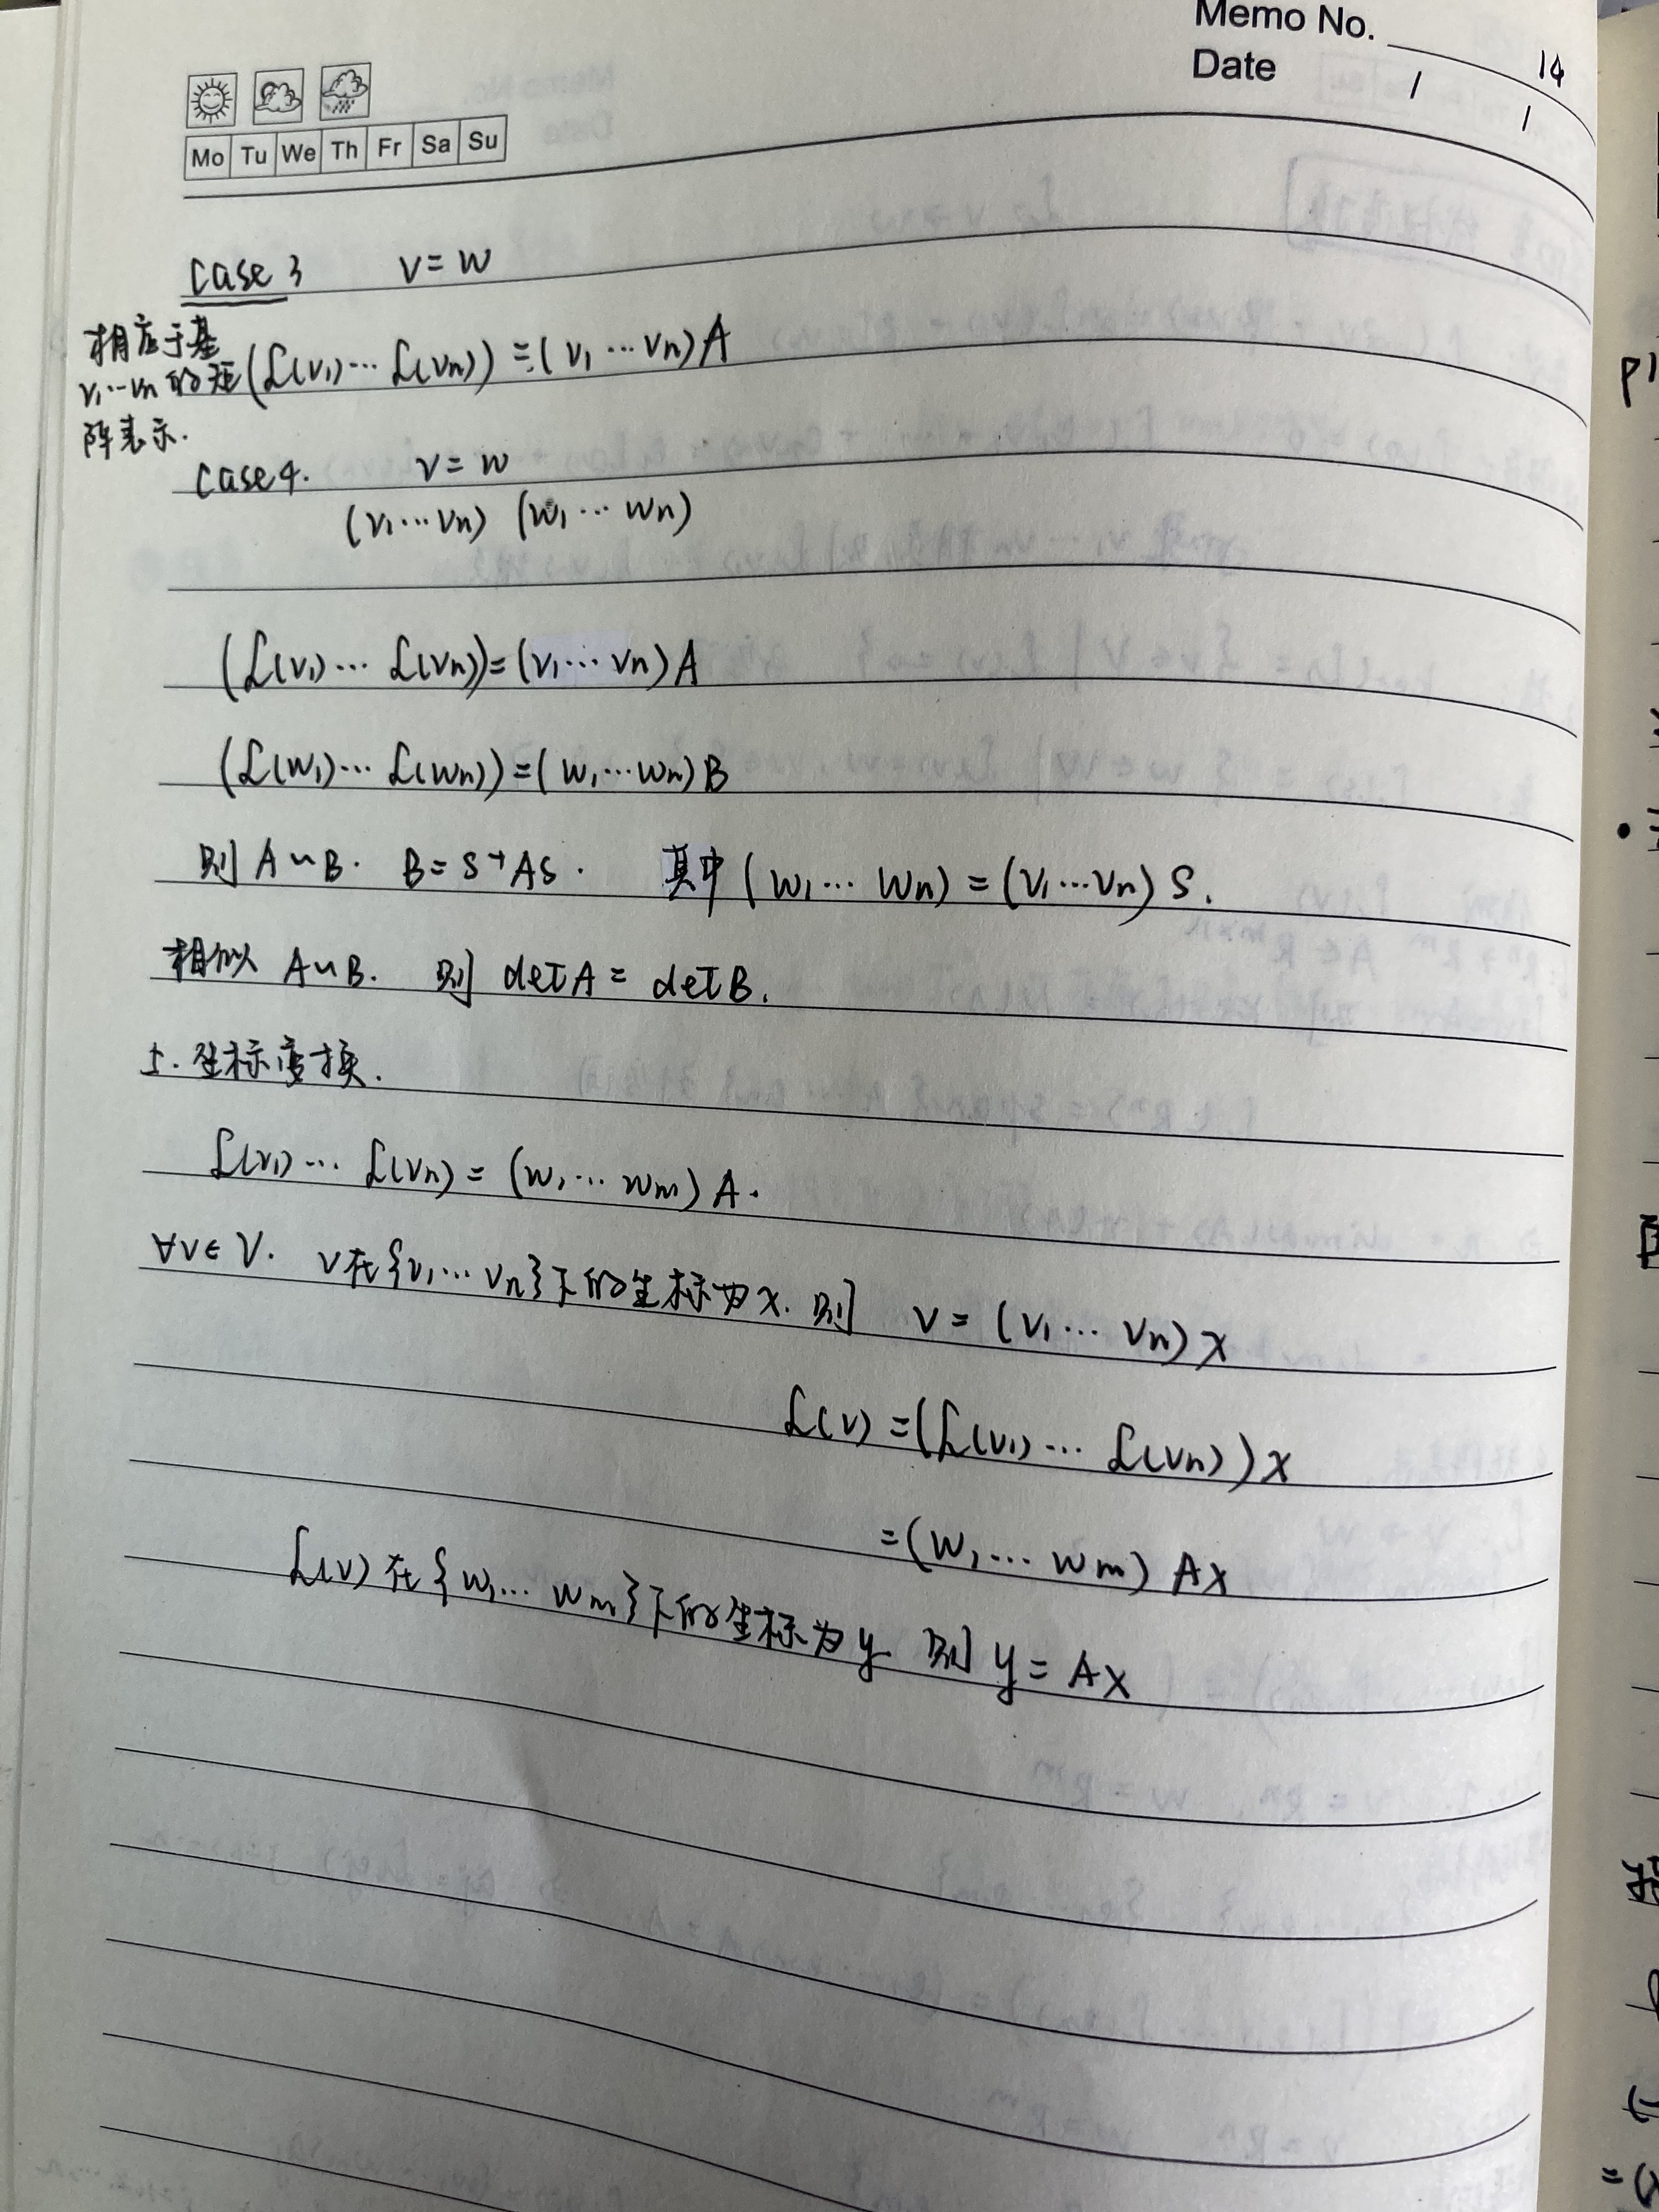 Memo No.
14
Date / /
Mo Tu We Th Fr Sa Su
Case 3 V = W
相应于基
v₁…vₙ的矩
阵表示.
(L(v₁)… L(vₙ)) = (v₁ … vₙ)A
Case 4. V = W
(v₁…vₙ) (w₁ … wₙ)
(L(v₁)… L(vₙ)) = (v₁…vₙ)A
(L(w₁)… L(wₙ)) = (w₁…wₙ)B
则 A∽B. B = S⁻¹AS. 其中 (w₁… wₙ) = (v₁…vₙ) S.
相似 A∽B. 则 detA = detB.
5. 坐标变换.
L(v₁)… L(vₙ) = (w₁… wₘ) A.
∀v∈V. v在{v₁… vₙ}下的坐标为x. 则 v = (v₁… vₙ) x
L(v) = (L(v₁)… L(vₙ)) x
= (w₁… wₘ) Ax
L(v)在{w₁… wₘ}下的坐标为y 则 y = Ax